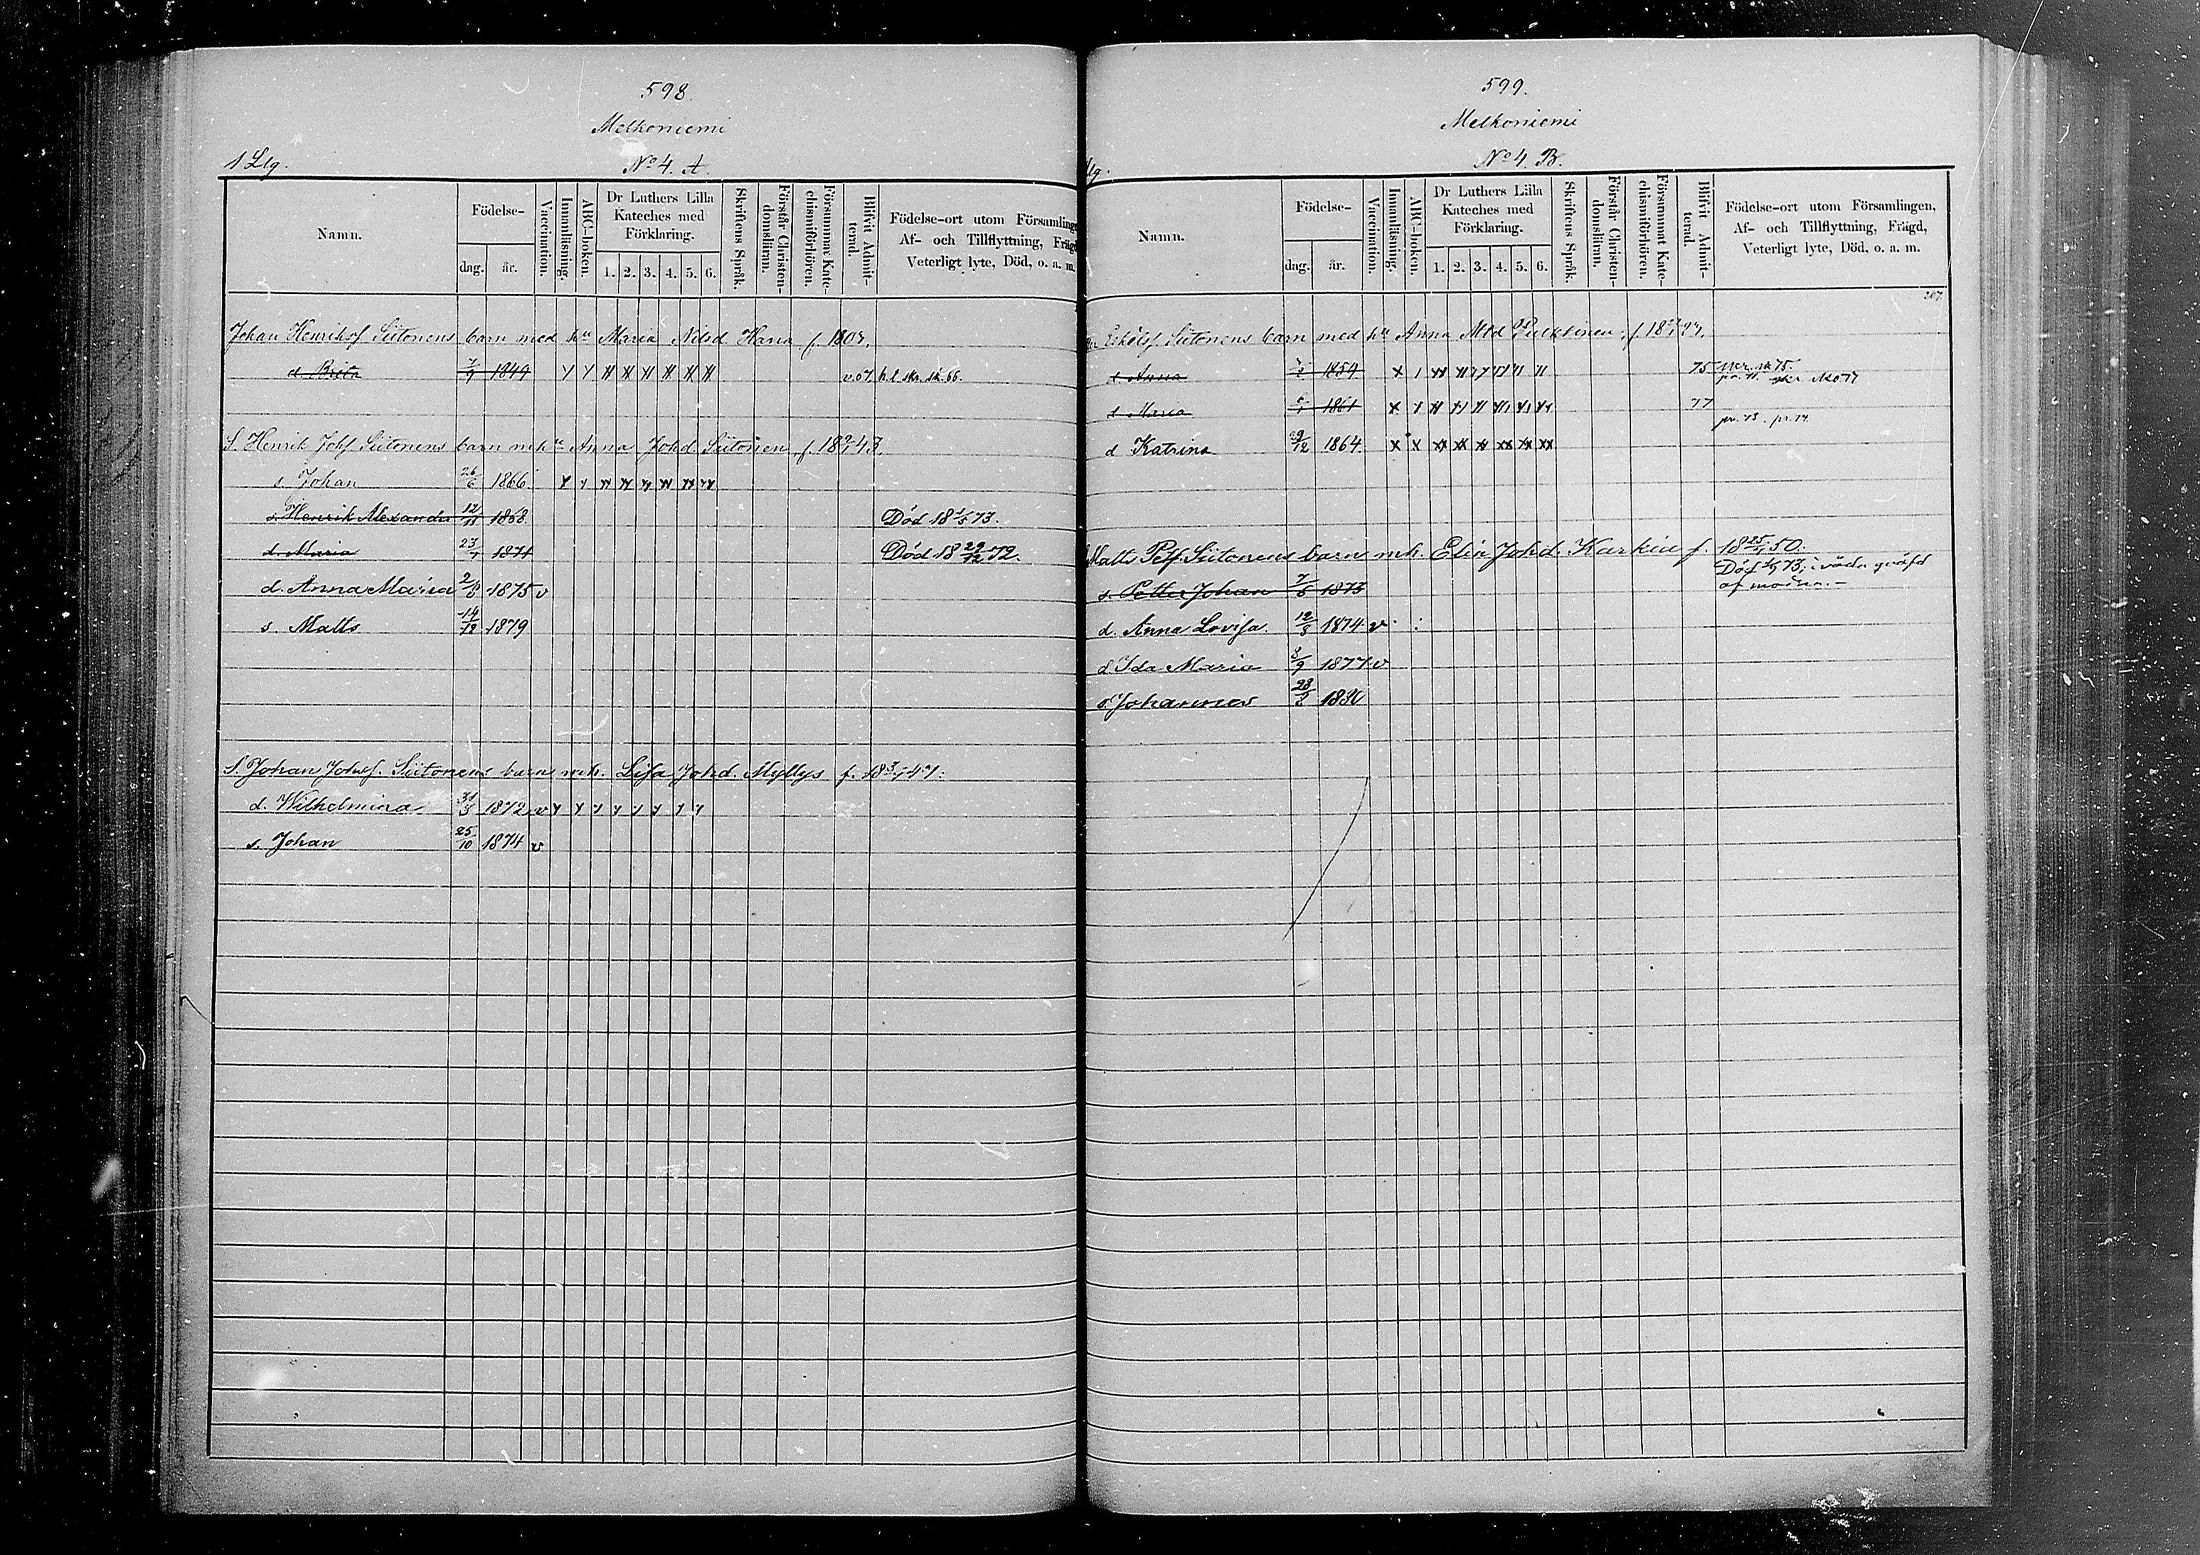 598.
Melkoniemi
1 Llg.
No 4. A.
Namn.
Födelse-
dag.
år.
Vaccination.
Innanläsning.
ABC-boken.
Dr Luthers Lilla
Kateches med
Förklaring.
1. 2. 3. 4. 5. 6.
Skriftens Språk.
Förstår Christen-
domsläran.
Försummat Kate-
chismiförhören.
Blifvit Admit-
terad.
Födelse-ort utom Församlingen
Af- och Tillflyttning, Frägd
Veterligt lyte, Död, o. a. m.
Johan Henriksf. Siitonens barn med hu Maria Nilsd Hana f. 1807.
d. Brita 7/9 1849 h.l. skr. sk. 66.
S. Henrik Johf Siitonens barn m hu Anna Johd. Siitonen f. 43
s. Johan 26/6 1866
s. Henrik Alexander 12/11 1868 Död 18 1/5 73.
d. Maria 23/1 1871 Död 18 29/12 72.
d. Anna Maria 2/8 1875 v
s. Matts 14/12 1879
S. Johan Johsf. Siitonens barn mh. Lisa Johd. Myllys f. 47.
d. Wilhelmina 31/3 1872 v
s. Johan 25/10 1874 v
599.
Melkoniemi
No 4. B.
lg.
Namn.
Födelse-
dag.
år.
Vaccination.
Innanläsning.
ABC-boken.
Dr Luthers Lilla
Kateches med
Förklaring.
1. 2. 3. 4. 5. 6.
Skriftens Språk.
Förstår Christen-
domsläran.
Försummat Kate-
chismiförhören.
Blifvit Admit-
terad.
Födelse-ort utom Församlingen,
Af- och Tillflyttning, Frägd,
Veterligt lyte, Död, o. a. m.
Siitonens barn med hu Anna Mtd Pulkkinen, f.
d. Anna 1859 75
d. Maria 1861 77
pr. 73. pr. 74.
d Katrina 29/12 1864
Matts Petf. Siitonens barn mh. Elin Johd. Karkin f. 50.
Död 73; i våda qväfd
af modren.-
s. Petter Johan 7/5 1873
d. Anna Lovisa. 12/3 1874 v
d. Ida Maria 8/9 1877 v
s. Johannes 1880